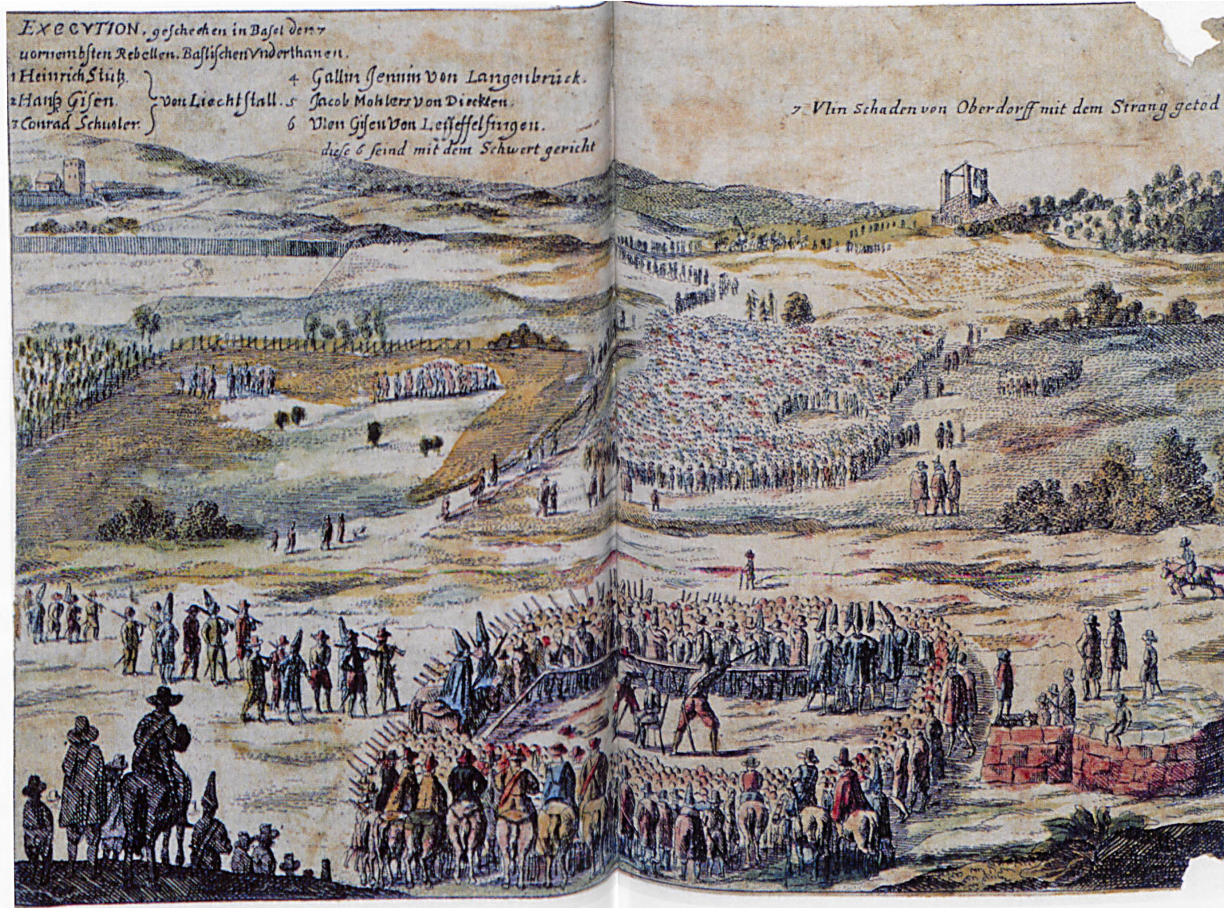 EXECVTION, geschechen in Basel den 7
vornembsten Rebellen. Baslischen Vnderthanen.
1 Heinrich Stutz.
2 Hanß Gisen.
3 Conrad Schuoler.
von Liechtstall.
4 Gallin Jennin Von Langenbruck.
5 Jacob Mohlers von Dieckten.
6 Vlen Gisen Von Leiffelfingen.
diese 6 seind mit dem Schwert gericht
7 Vlin Schaden von Oberdorff mit dem Strang getod